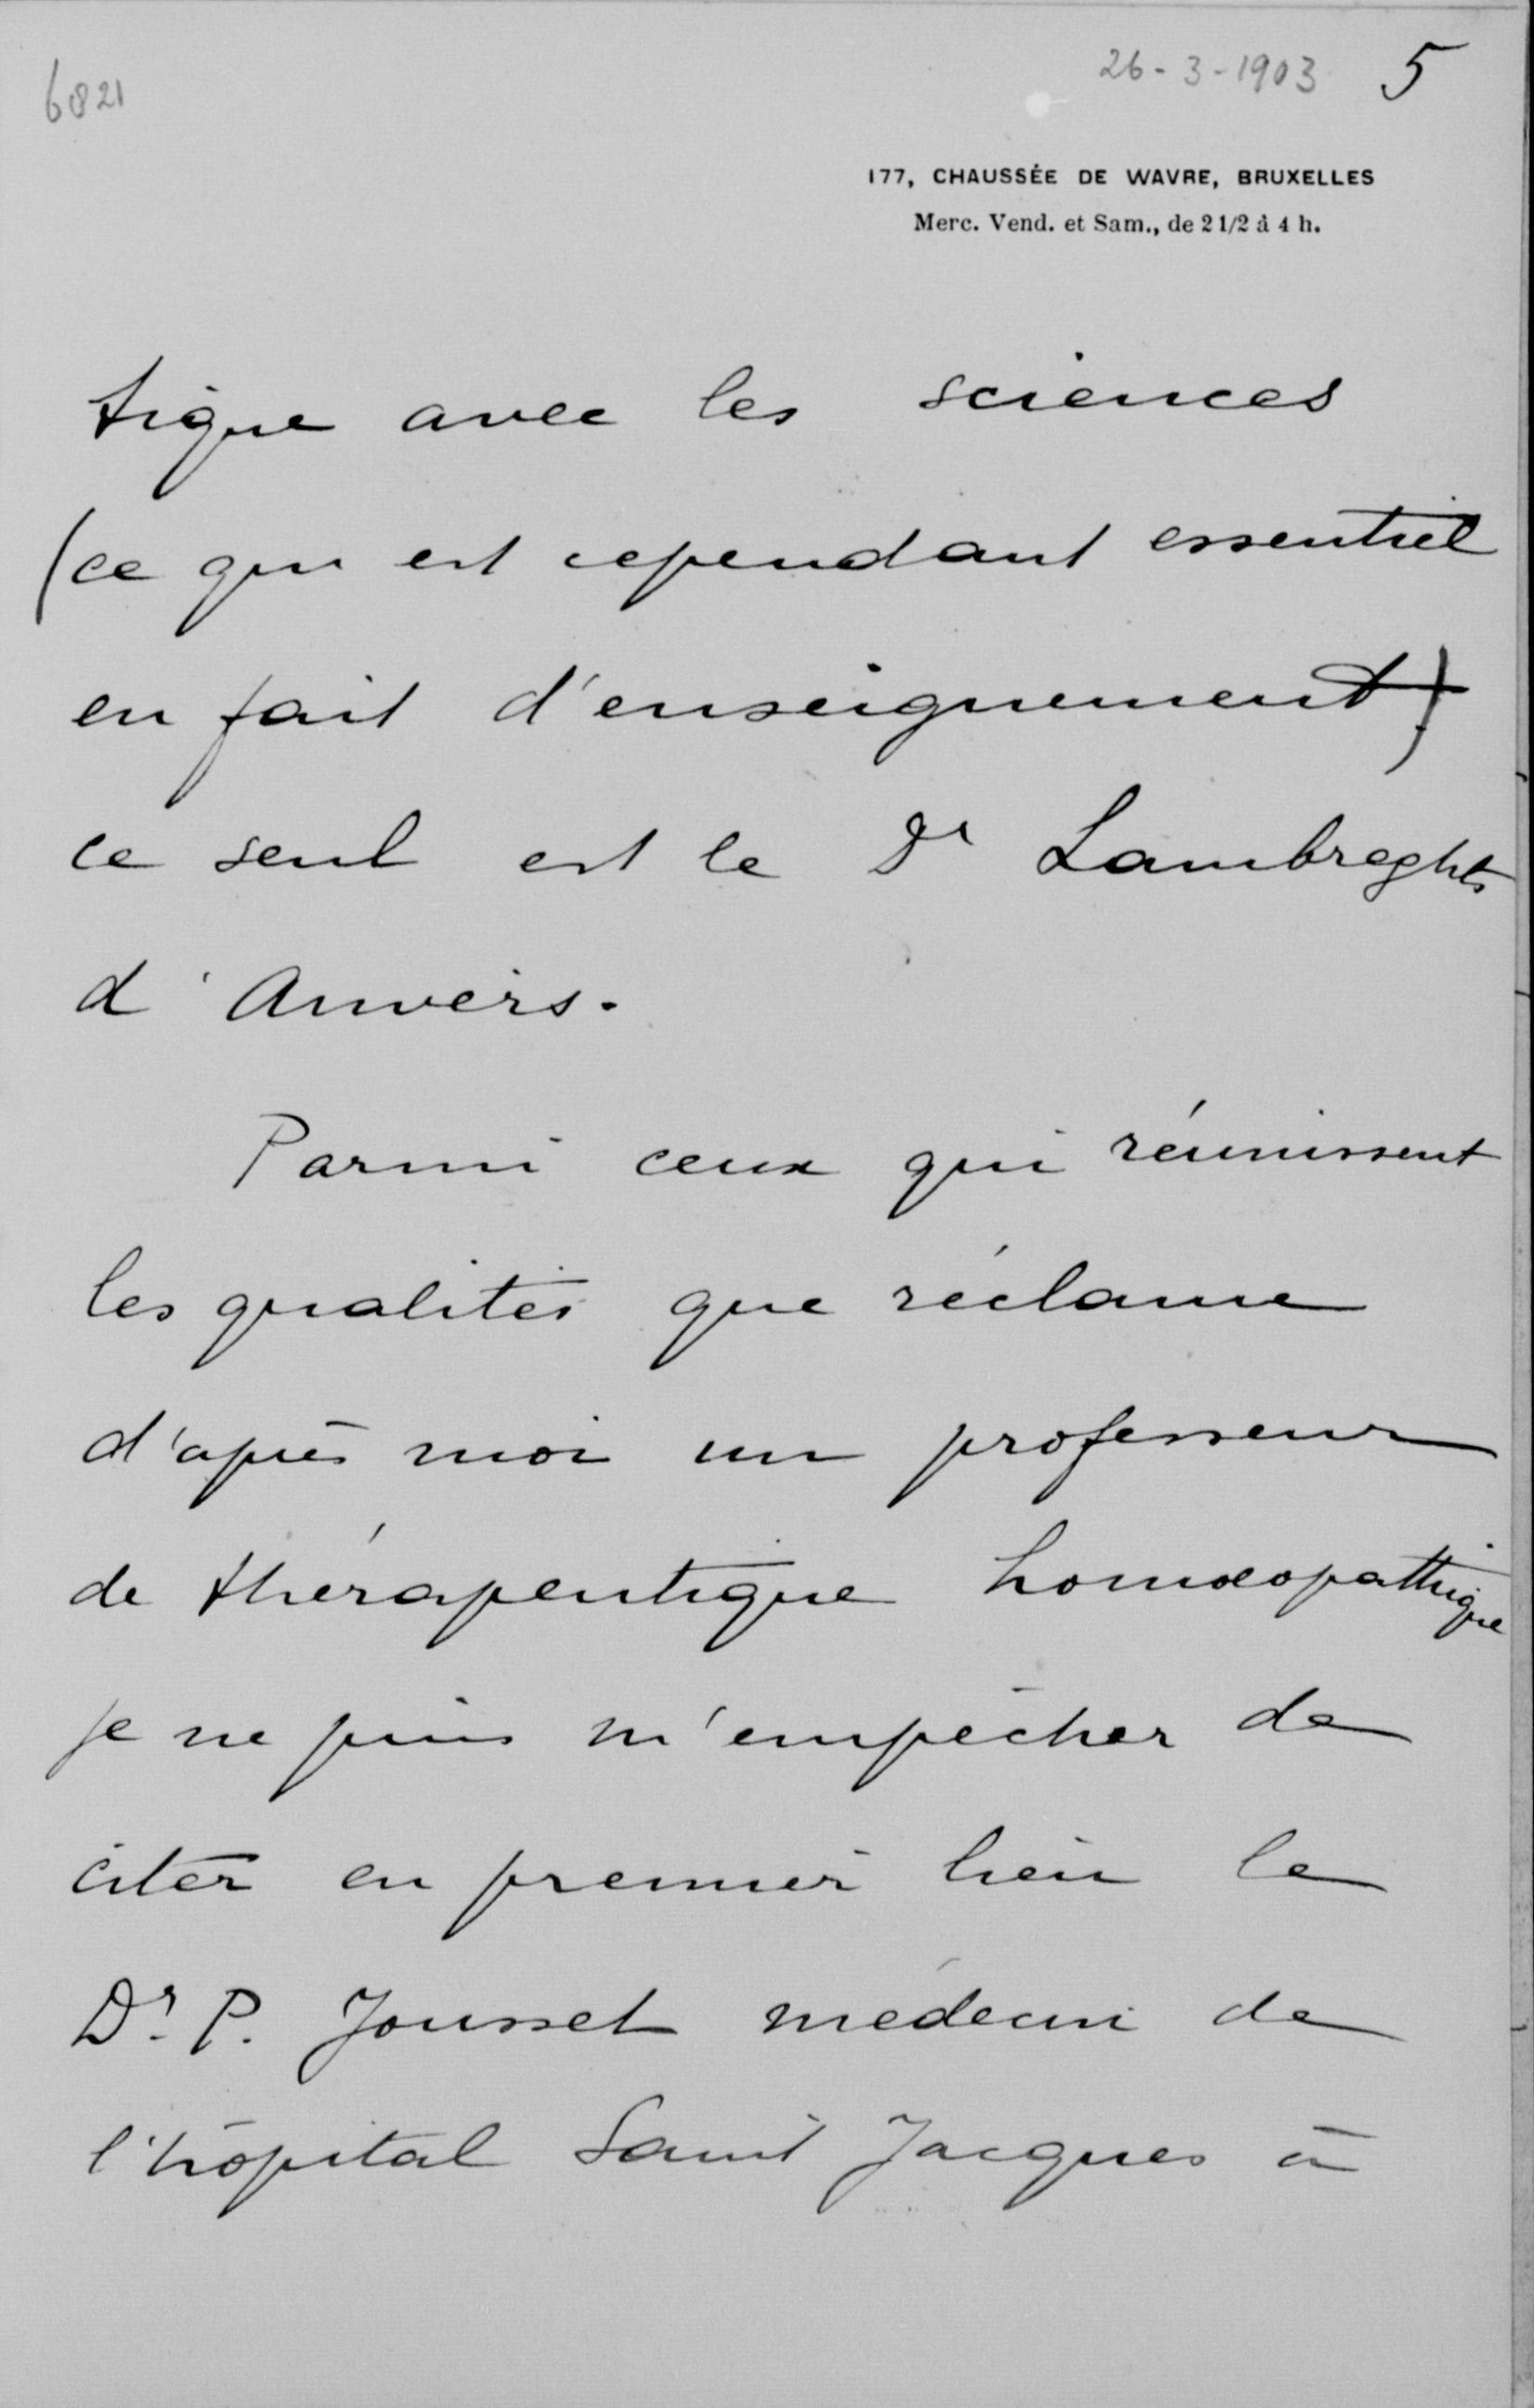 6821
26-3-1903 5
177, CHAUSSÉE DE WAVRE, BRUXELLES
Merc. Vend. et Sam., de 2 1/2 à 4 h.
tique avec les sciences
(ce qui est cependant essentiel
en fait d'enseignement)
ce seul est le Dr Lambreghts
d'Anvers.
Parmi ceux qui réunissent
les qualités que réclame
d'après moi un professeur
de thérapeutique homœopathique
je ne puis m'empêcher de
citer en premier lieu le
Dr. P. Jousset médecin de
l'hôpital Saint Jacques à